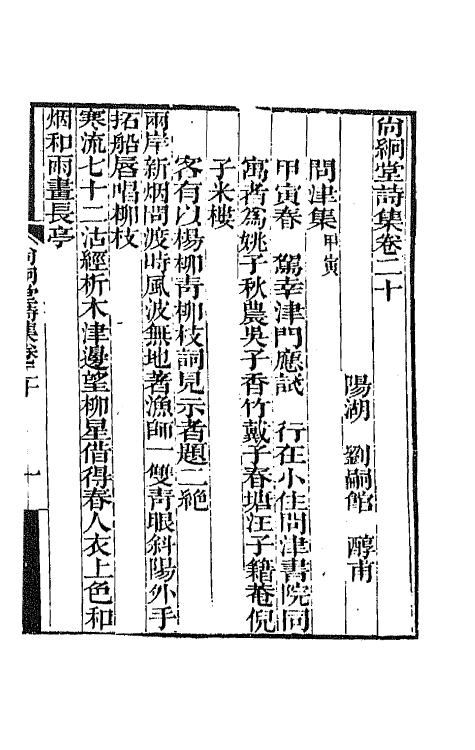 尚絅堂詩集卷二十
陽湖 劉嗣綰 醇甫
問津集甲寅
甲寅春 駕幸津門應試 行在小住問津書院同
寓者爲姚子秋農吳子香竹戴子春塘汪子籍菴倪
子米樓
客有以楊柳青柳枝詞見示者題二絶
兩岸新烟問渡時風波無地著漁師一雙青眼斜陽外手
拓船唇唱柳枝
寒流七十二沽經析木津邊望柳星借得春人衣上色和
烟和雨畫長亭
尚絅堂詩集卷二十 一